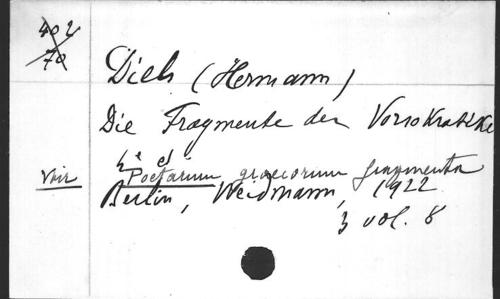 402
70
Diels (Hermann)
Die Fragmente der Vorsokratike
4e ed
voir Poetarum graecorum fragmenta
Berlin, Weidmann, 1922
3 vol. 8